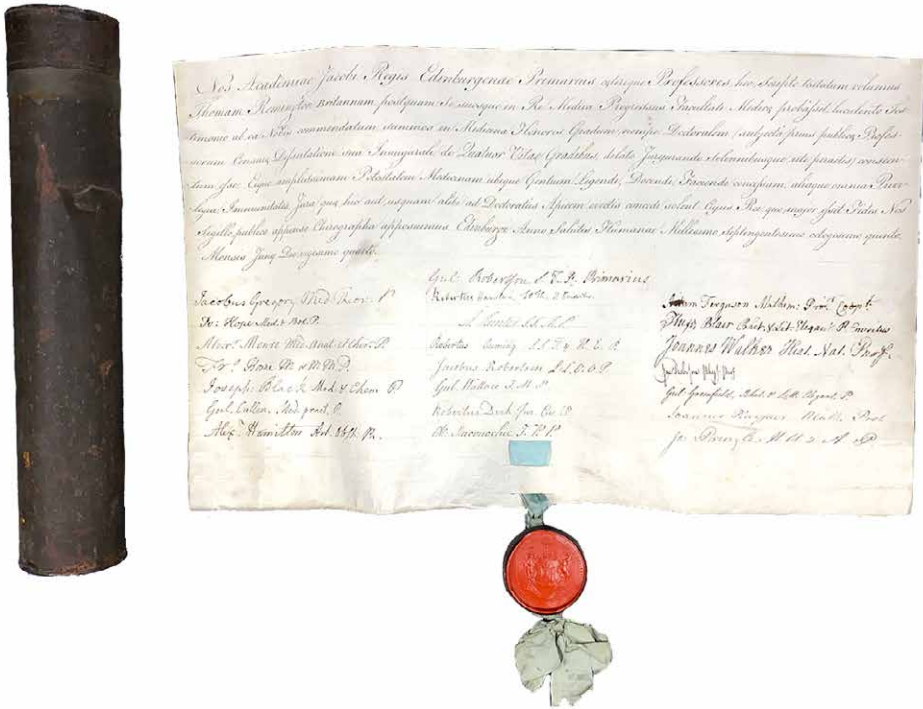 Nos Academiae Jacobi Regis Edinburgenae Primarius caeterique Professores, hoc Scripto testatum volumus
Thomam Remington Britannum, postquam Se suosque in Re Medica Progressus Facultati Medicae probasset, luculento Tes-
timonio ab ea Nobis commendatum, summum in Medicina Honoris Gradum, nempe Doctoralem (subjecta prius publicae Profes-
sorum Censurae Dissertatione sua Inaugurali de Quatuor Vitae Gradibus, dehato Jurejurando Solennibusque rite peractis) consecu-
tum esse; Eique amplissimam Potestatem Medicinam ubique Gentium Legendi, Docendi, Faciendi concessam, aliaque omnia Privi-
legia, Immunitates, Jura, quae hic aut usquam alibi ad Doctoratus Apicem evectis concedi solent. Cujus Rei, quo major esset Fides, Nos
Sigillo publico appenso Chirographa apposuimus. Edinburgi Anno Salutis Humanae Millesimo septingentesimo octogesimo quinto
Menses Junii Die vigesimo quarto.
Gul. Robertson S. T. P. Primarius
Jacobus Gregory Med. Theor. P.
Jo: Hope Med. & Bot. P.
Alexr. Monro Med. Anat. et Chir. P.
Frs. Home M. & M. M. P.
Joseph Black Med. & Chem. P.
Gul. Cullen Med. pract. P.
Alexr. Hamilton Art. Obst. P.
Robertus Hamilton
Robertus Cuming S. S. T. & H. E. P.
Jacobus Robertson L. L. O. O. P.
Gul. Wallace
Robertus Dick Jur. Civ. P.
Al. Maconochie
Adam Ferguson Mathem. Prof.
Hugo Blair Rhet. & Lit. Elegan. P. Emeritus
Joannes Walker Hist. Nat. Prof.
Gul. Greenfield, Rhet. & Litt. Elegant. P.
Joannes Playfair Math. Prof.
Jo. Pringle